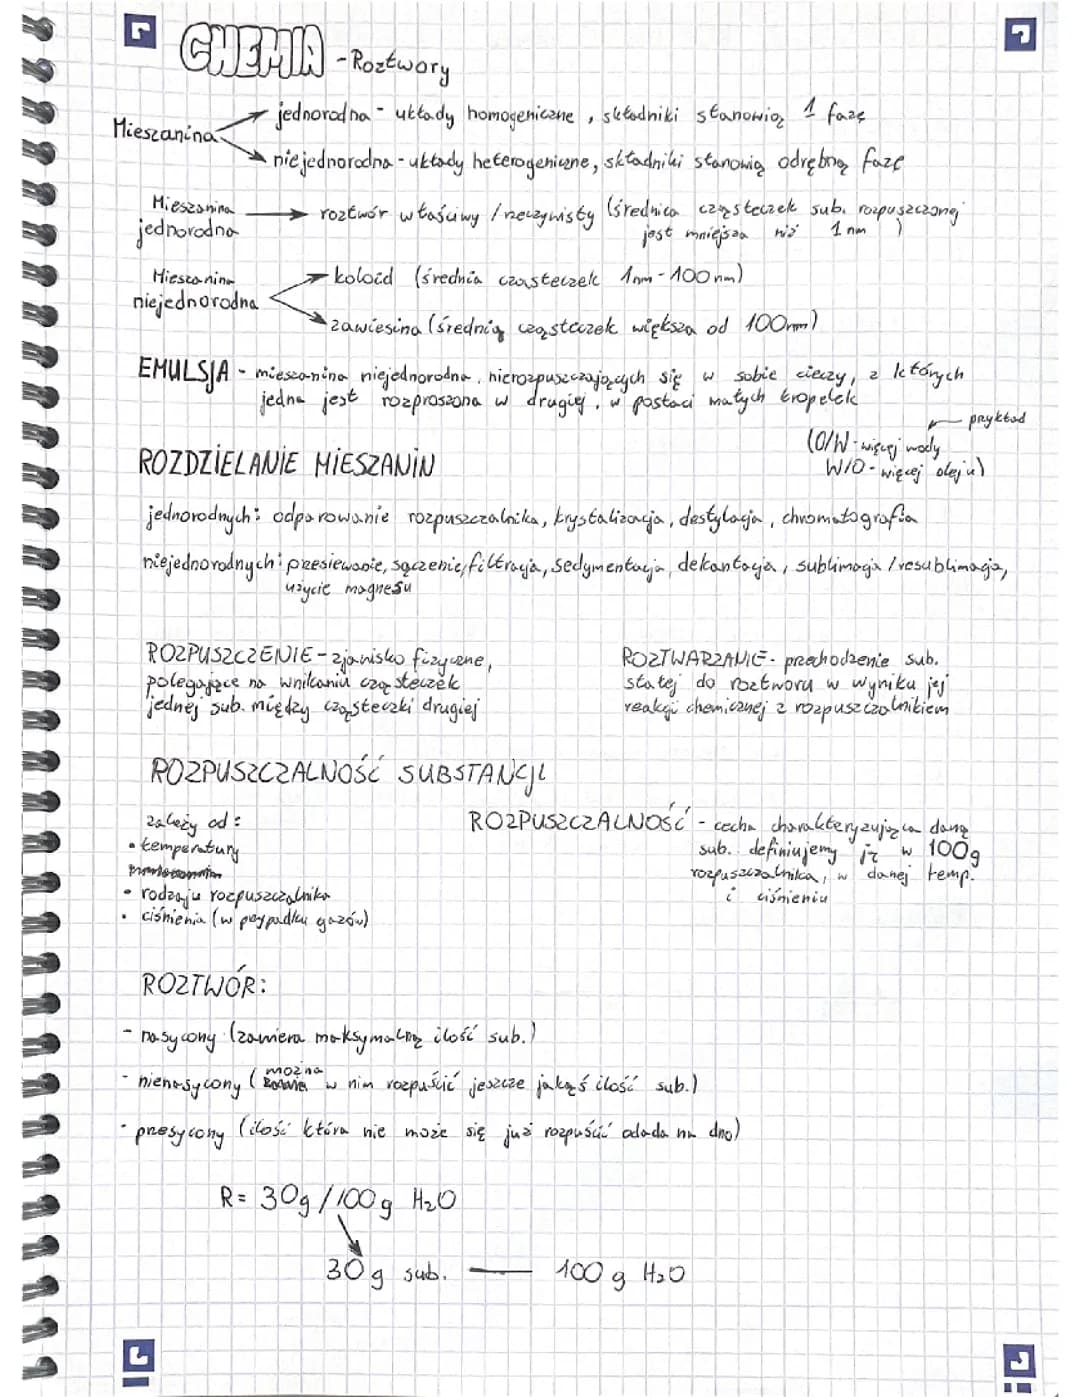 CHEMIA - Roztwory
Mieszanina
jednorodna - układy homogeniczne, składniki stanowią 1 fazę
niejednorodna - układy heterogeniczne, składniki stanowią odrębną fazę
Mieszanina jednorodna
roztwór właściwy / rzeczywisty (średnica cząsteczek sub. rozpuszczonej
jest mniejsza niż 1 nm)
Mieszanina niejednorodna
koloid (średnia cząsteczek 1nm-100nm)
zawiesina (średnią cząsteczek większa od 100nm)
EMULSJA - mieszanina niejednorodna, nierozpuszczających się w sobie cieczy, z których
jedna jest rozproszona w drugiej, w postaci małych kropelek
przykład
(O/W - więcej wody
W/O - więcej oleju)
ROZDZIELANIE MIESZANIN
jednorodnych: odparowanie rozpuszczalnika, krystalizacja, destylacja, chromatografia
niejednorodnych: przesiewanie, sączenie/filtracja, sedymentacja, dekantacja, sublimacja/resublimacja,
użycie magnesu
ROZPUSZCZENIE - zjawisko fizyczne,
polegające na wnikaniu cząsteczek
jednej sub. między cząsteczki drugiej
ROZTWARZANIE - przechodzenie sub.
stałej do roztworu w wyniku jej
reakcji chemicznej z rozpuszczalnikiem
ROZPUSZCZALNOŚĆ SUBSTANCJI
zależy od:
• temperatury
• rodzaju rozpuszczalnika
• ciśnienia (w przypadku gazów)
ROZPUSZCZALNOŚĆ - cecha charakteryzująca daną
sub. definiujemy ją w 100g
rozpuszczalnika, w danej temp.
i ciśnieniu
ROZTWÓR:
- nasycony (zawiera maksymalną ilość sub.)
- nienasycony (można w nim rozpuścić jeszcze jakąś ilość sub.)
- przesycony (ilość która nie może się już rozpuścić opada na dno)
R = 30g/100g H₂O
30g sub. — 100g H₂O